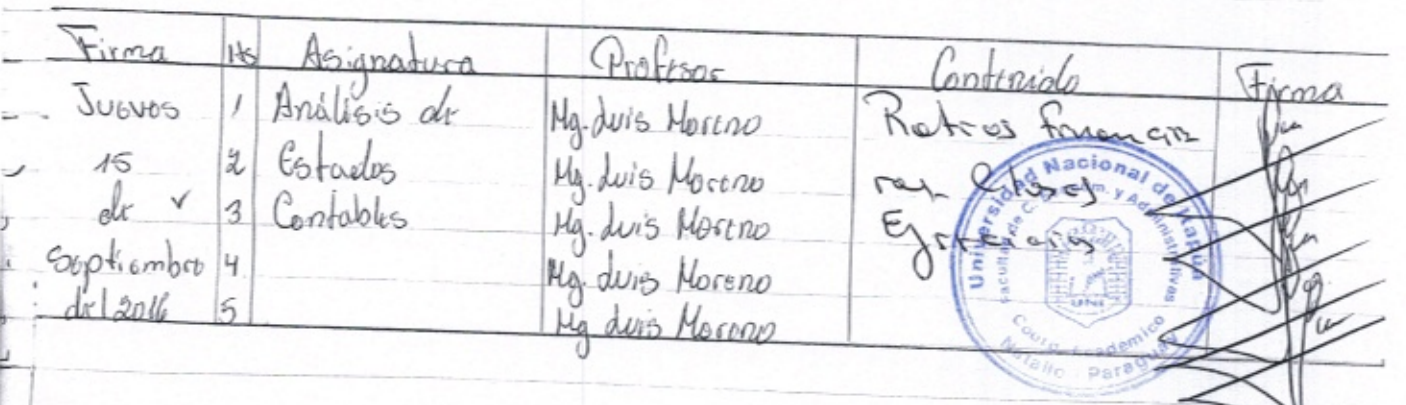 Firma Hs Asignatura Profesor Contenido Firma
Juevos 1 Análisis de Mg. Luis Moreno Ratios financie
15 2 Estados Mg. Luis Moreno
de 3 Contables Mg. Luis Moreno Ejercicios
Septiembre 4 Mg. Luis Moreno
del 2016 5 Mg Luis Moreno
Universidad Nacional de Itapúa
Facultad de C. y Administrativas
UNI
Coord. Académico
Natalio - Paraguay